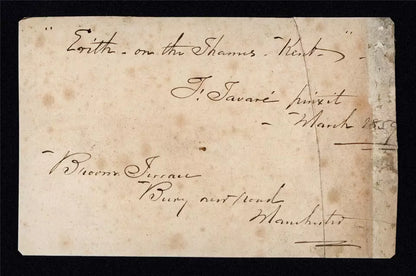 "Erith - on the Thames - Kent" -
F. Tavaré pinxit
- March 1859
Broom Terrace
Bury new road
Manchester